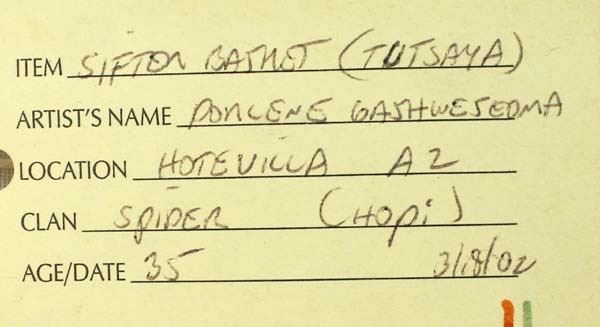 ITEM SIFTER BASKET (TUTSAYA)
ARTIST'S NAME DORLENE GASHWESEOMA
LOCATION HOTEVILLA AZ
CLAN SPIDER (HOPi)
AGE/DATE 35 3/18/02